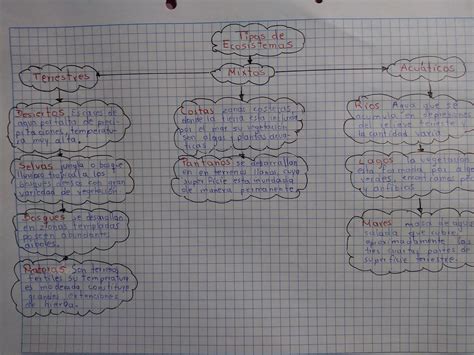 Tipos de
Ecosistemas
Terrestres
Mixtos
Acuáticos
Desiertos Escases de
agua por falta de preci-
pitaciones, temperatu-
ra muy alta.
Selvas jungla o bosque
lluvioso tropical los
bosques densos con gran
variedad de vegetación
Bosques se desarrollan
en zonas templadas
poseen abundantes
árboles.
son terrenos
fertiles su temperatura
es moderada, constituye
grandes extenciones
de hierba.
Costas zonas costeras,
donde la tierra esta influida
por el mar su vegetación
son algas y plantas acuá-
ticas.
Pantanos se desarrollan
en en terrenos llanos, cuya
superficie esta inundada
de manera permanente
Rios Agua que se
acumula en depresiones
del relieve
la cantidad varia
Lagos la vegetación
esta formada por algas
peces
y anfibios
Mares masa de agua
salada que cubre
aproximadamente las
tres cuartas partes de
superficie terrestre.